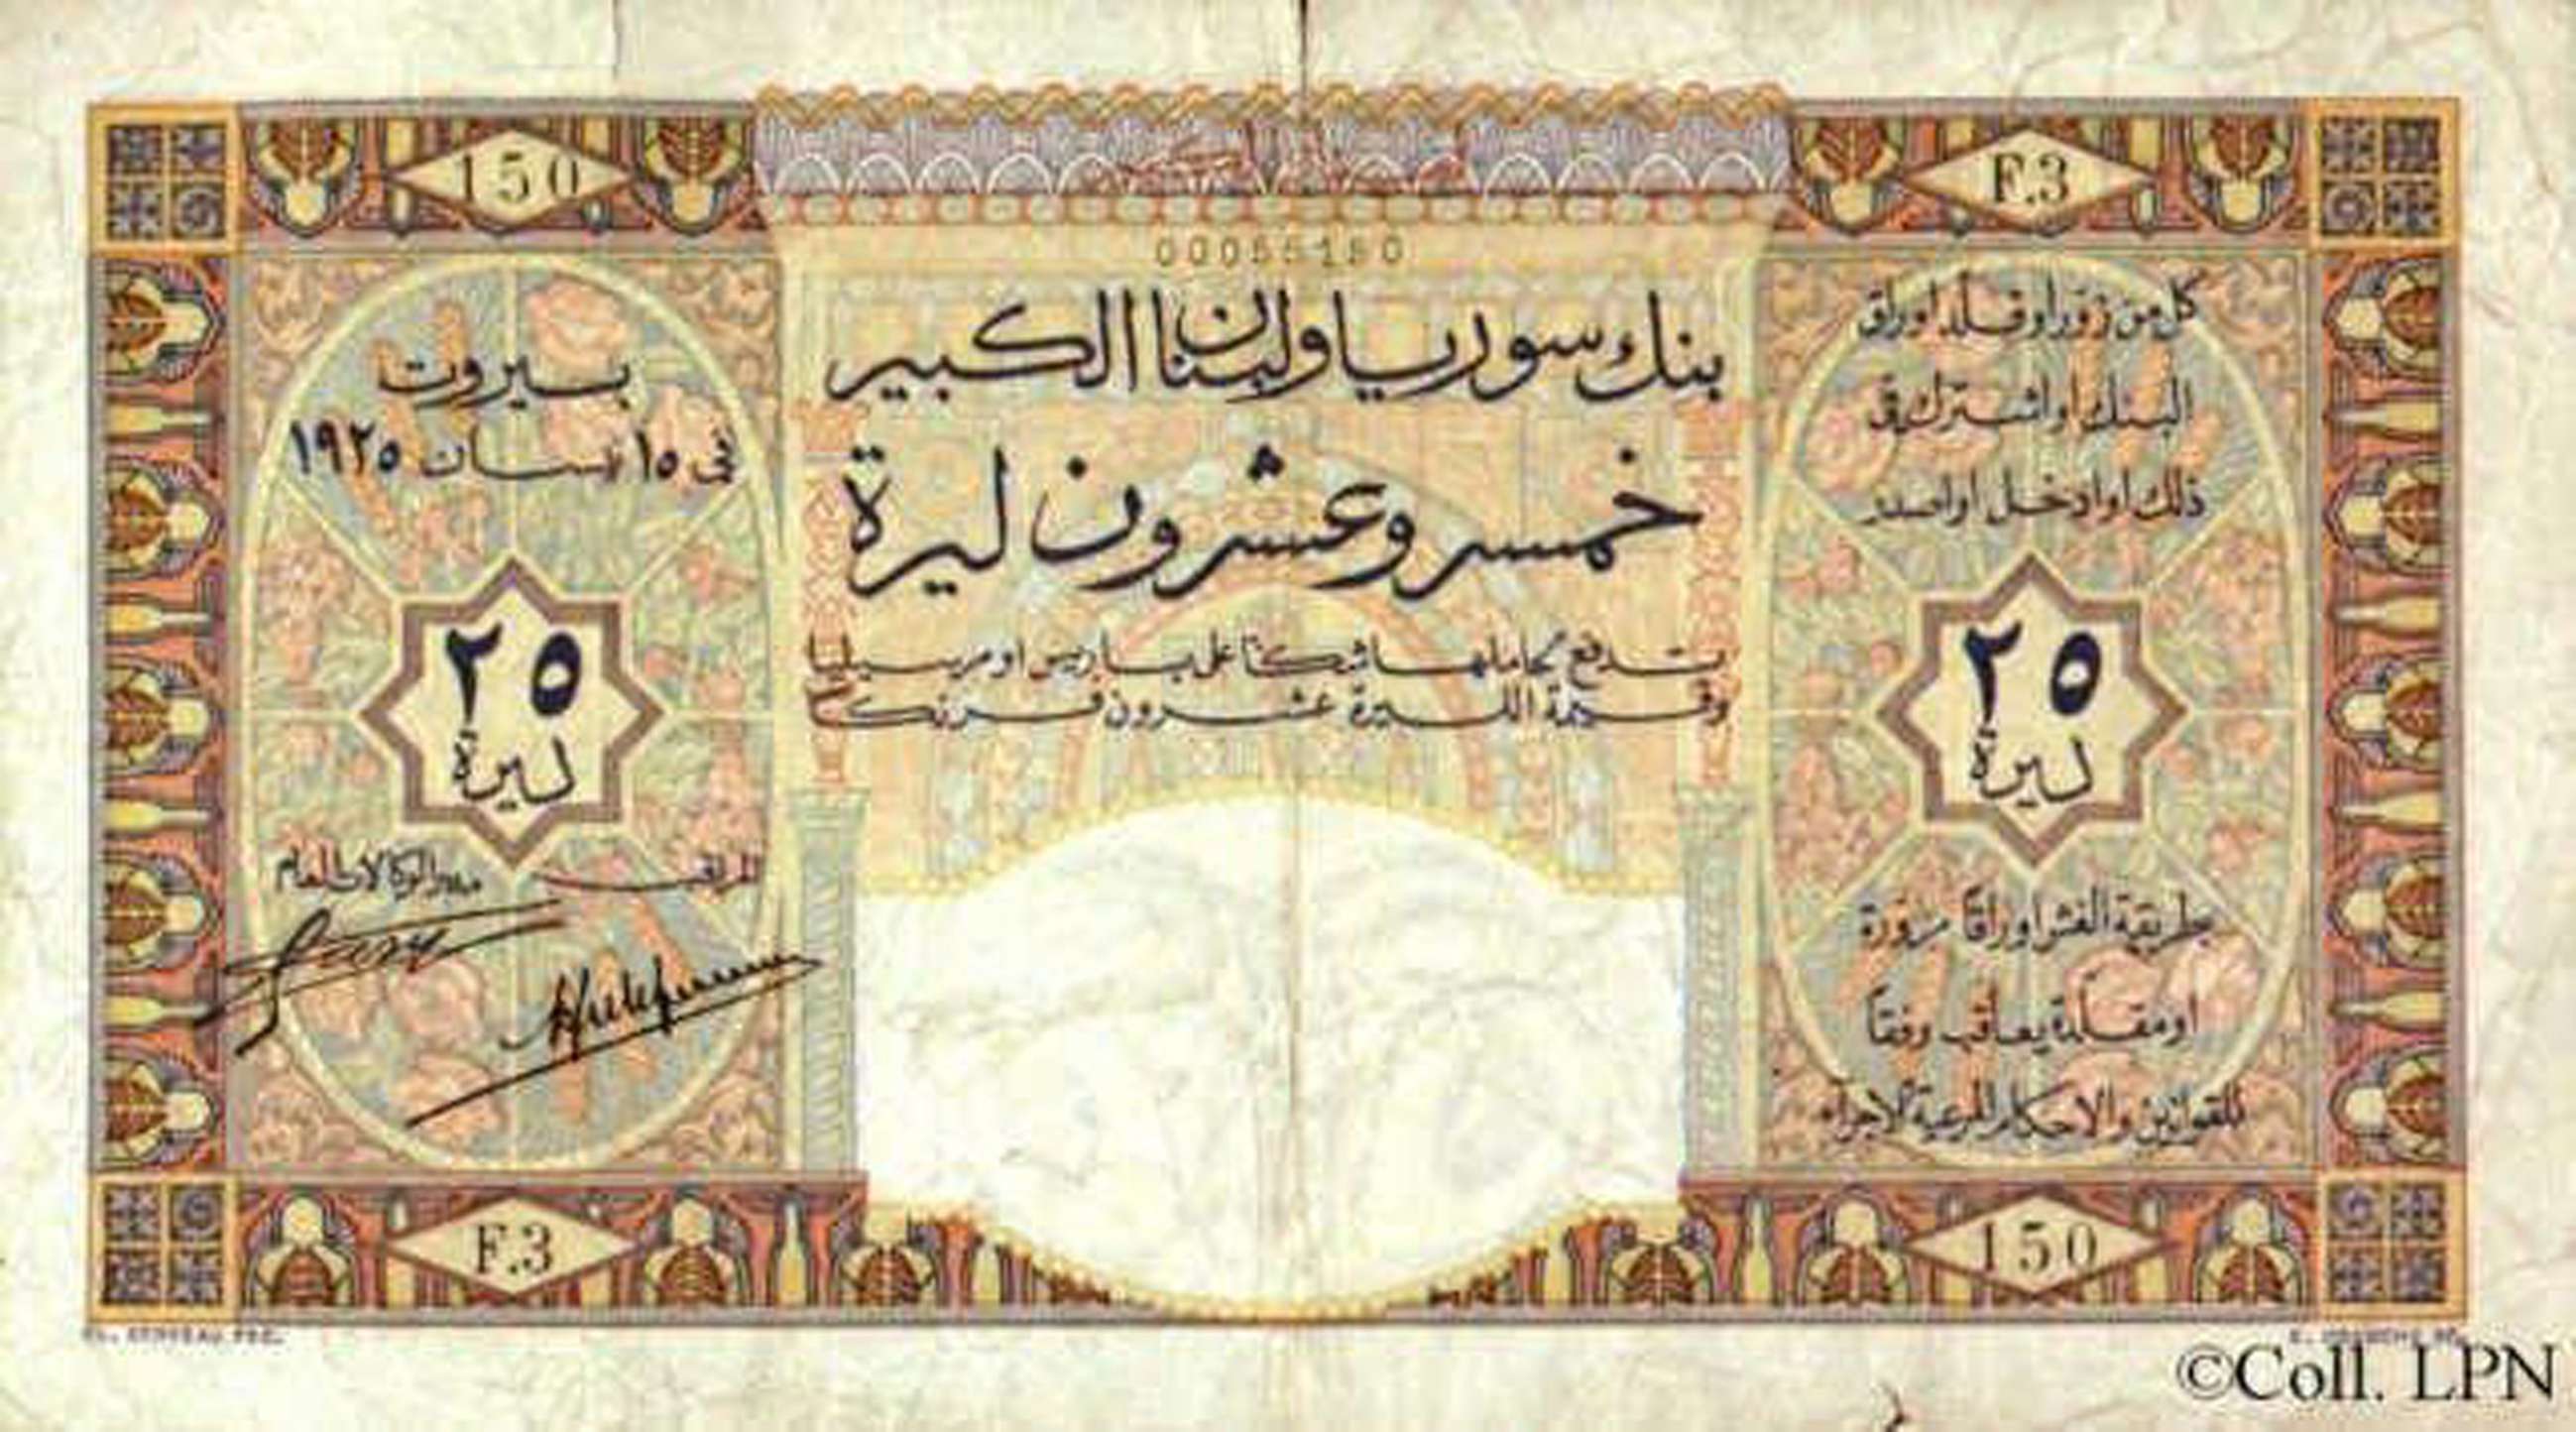 150
F.3
بنك سوريا ولبنان الكبير
خمس وعشرون ليرة
تدفع لحاملها شكًا على باريس او مرسيليا
وقيمة الليرة عشرون فرنكا
كل من زوّر او قلد اوراق
البنك او اشترك في
ذلك او ادخل او اصدر
٢٥
ليرة
بطريقة الغش اوراقًا مزوّرة
او مقلدة يعاقب وفقًا
للقوانين والاحكام المرعية الاجراء
بيروت
في ١٥ نيسان ١٩٢٥
٢٥
ليرة
المراقب
مدير الوكالات العام
F.3
150
©Coll. LPN